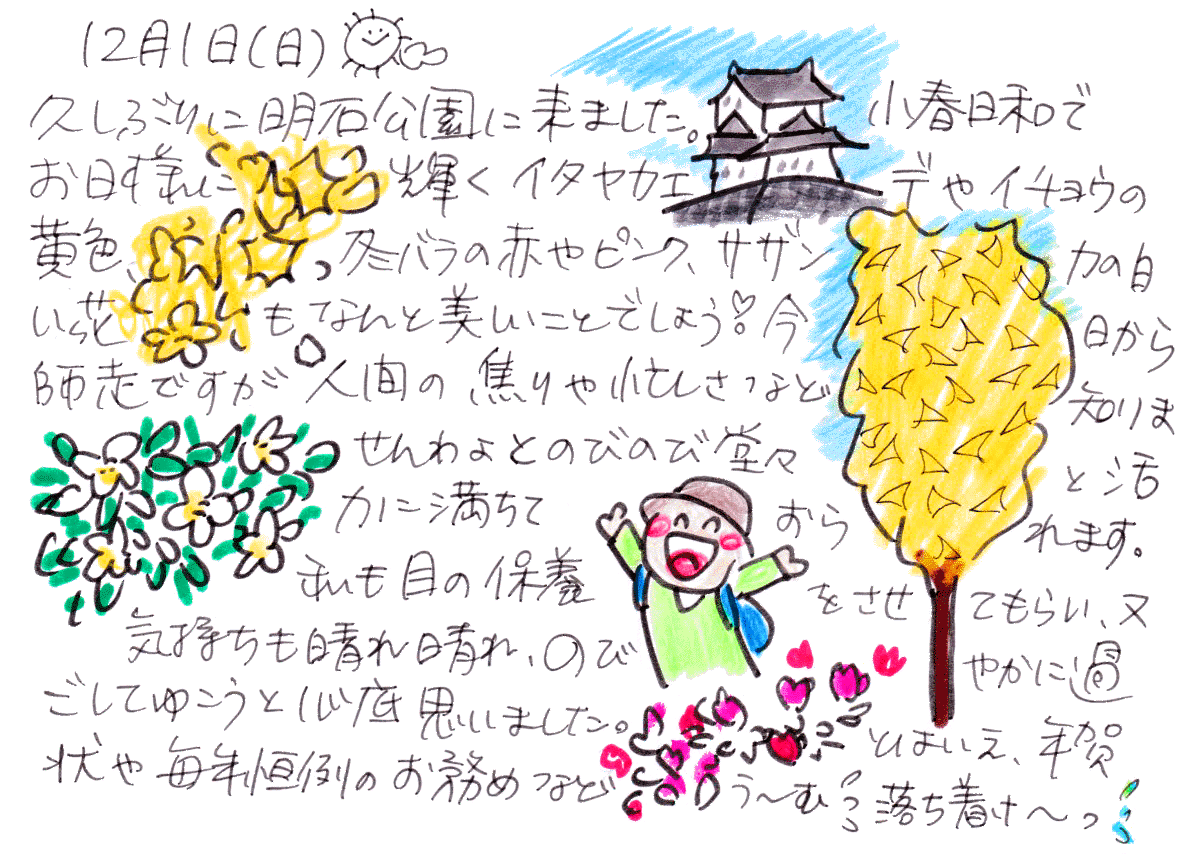 12月1日(日)
久しぶりに明石公園に来ました。小春日和で
お日様に輝くイタヤカエデやイチョウの
黄色、冬バラの赤やピンク、サザンカの白
い花もなんと美しいことでしょう!今日から
師走ですが人間の焦りや忙しさなど知りま
せんわよとのびのび堂々と活
力に満ちておられます。
私も目の保養をさせてもらい、又
気持ちも晴れ晴れ、のびやかに過
ごしてゆこうと心底思いました。とはいえ、年賀
状や毎年恒例のお務めなどう〜む 落ち着け〜っ